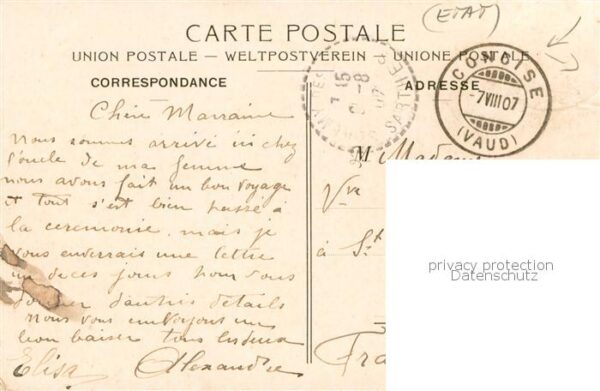 (ETAT)
CARTE POSTALE
UNION POSTALE — WELTPOSTVEREIN — UNIONE POSTALE
CORRESPONDANCE
ADRESSE
CONCISE
-7 VIII 07
(VAUD)
15
8
07
Chère Marraine
Nous sommes arrivé ici chez
l'oncle de ma femme
nous avons fait un bon voyage
et tout s'est bien passé à
la ceremonie, mais je
vous enverrais une lettre
un de ces jours pour vous
donner d'autres details
Nous vous envoyons un
bon baiser tous les deux
Elisa Alexandre
M Madame
Vve
à St
Fra
privacy protection
Datenschutz